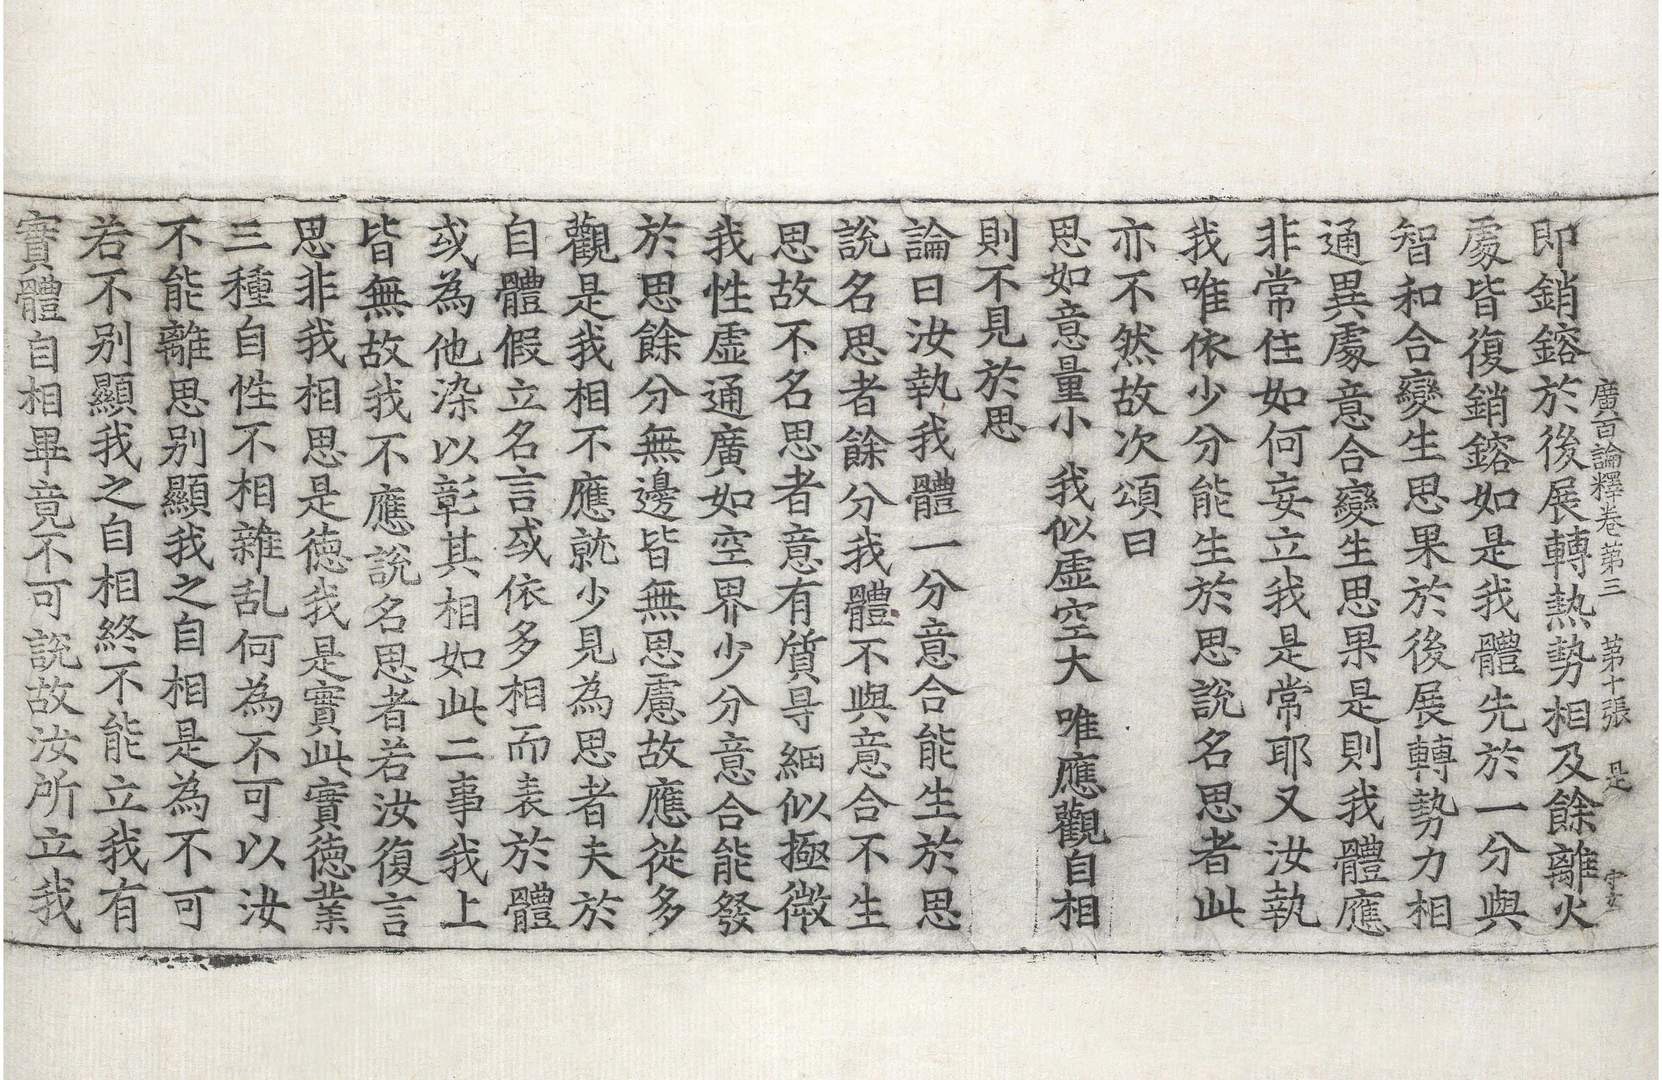 廣百論釋卷第三　第十張　是
即銷鎔於後展轉熱勢相及餘離火
處皆復銷鎔如是我體先於一分與
智和合變生思果於後展轉勢力相
通異處意合變生思果是則我體應
非常住如何妄立我是常耶又汝執
我唯依少分能生於思說名思者此
亦不然故次頌曰
思如意量小　我似虛空大　唯應觀自相
則不見於思
論曰汝執我體一分意合能生於思
說名思者餘分我體不與意合不生
思故不名思者意有質㝵細似極微
我性虛通廣如空界少分意合能發
於思餘分無邊皆無思慮故應從多
觀是我相不應就少見為思者夫於
自體假立名言或依多相而表於體
或為他染以彰其相如此二事我上
皆無故我不應說名思者若汝復言
思非我相思是德我是實此實德業
三種自性不相雜乱何為不可以汝
不能離思別顯我之自相是為不可
若不別顯我之自相終不能立我有
實體自相畢竟不可說故汝所立我